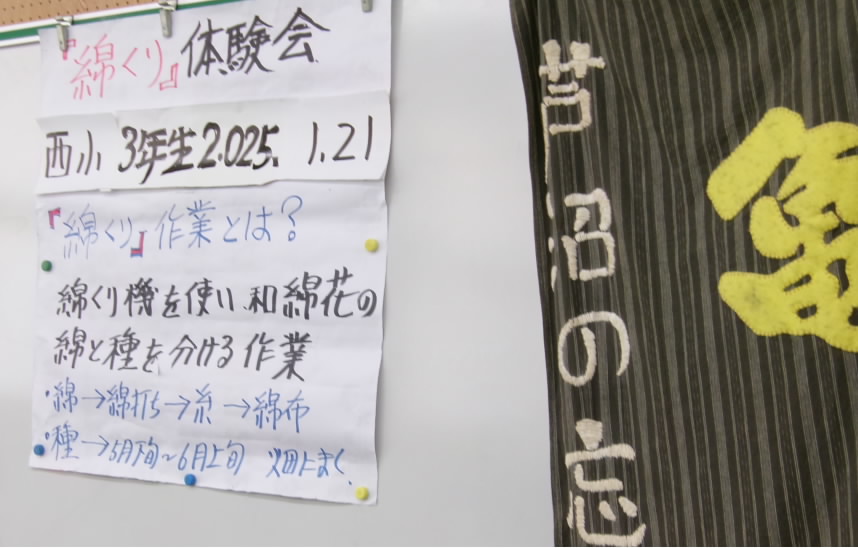 『綿くり』体験会
西小 3年生 2.025. 1.21
『綿くり』作業とは?
綿くり機を使い 和綿花の
綿と種を分ける作業
・綿→綿打ち→糸→綿布
・種→5月下旬~6月上旬 畑にまく
芦沼の忘